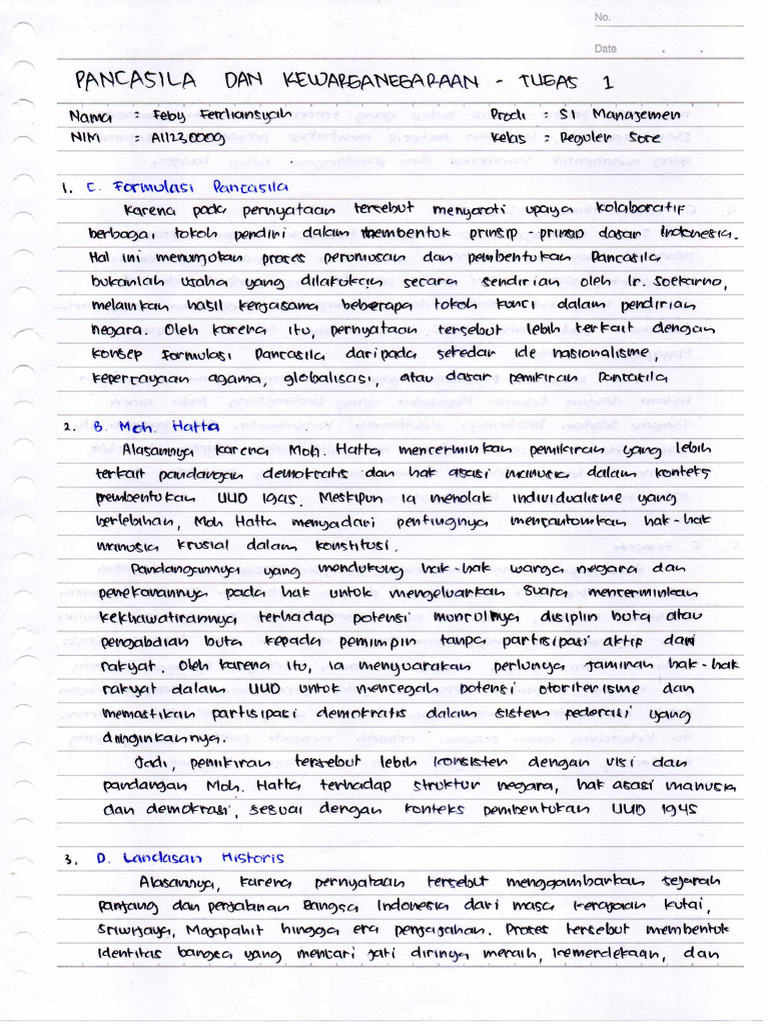 No.
Date
PANCASILA DAN KEWARGANEGARAAN - TUGAS 1
Nama : Feby Ferdiansyah Prodi : S1 Manajemen
NIM : A11230009 Kelas : Reguler Sore
1. C. Formulasi Pancasila
Karena pada pernyataan tersebut menyoroti upaya kolaboratif
berbagai tokoh pendiri dalam membentuk prinsip-prinsip dasar Indonesia.
Hal ini menunjukan proses perumusan dan pembentukan Pancasila
bukanlah usaha yang dilakukan secara sendirian oleh Ir. Soekarno,
melainkan hasil kerjasama beberapa tokoh kunci dalam pendirian
negara. Oleh karena itu, pernyataan tersebut lebih terkait dengan
konsep formulasi Pancasila daripada sekedar ide nasionalisme,
kepercayaan agama, globalisasi, atau dasar pemikiran Pancasila
2. B. Moh. Hatta
Alasannya karena Moh. Hatta mencerminkan pemikiran yang lebih
terkait pandangan demokratis dan hak asasi manusia dalam konteks
pembentukan UUD 1945. Meskipun ia menolak individualisme yang
berlebihan, Moh Hatta menyadari pentingnya mencantumkan hak-hak
manusia krusial dalam konstitusi.
Pandangannya yang mendukung hak-hak warga negara dan
penekanannya pada hak untuk mengeluarkan suara mencerminkan
kekhawatirannya terhadap potensi munculnya disiplin buta atau
pengabdian buta kepada pemimpin tanpa partisipasi aktif dari
rakyat. Oleh karena itu, ia menyuarakan perlunya jaminan hak-hak
rakyat dalam UUD untuk mencegah potensi otoriterisme dan
memastikan partisipasi demokratis dalam sistem federasi yang
diinginkannya.
Jadi, pemikiran tersebut lebih konsisten dengan visi dan
pandangan Moh. Hatta terhadap struktur negara, hak asasi manusia
dan demokrasi, sesuai dengan konteks pembentukan UUD 1945
3. D. Landasan Historis
Alasannya, karena pernyataan tersebut menggambarkan sejarah
panjang dan perjalanan Bangsa Indonesia dari masa kerajaan kutai,
Sriwijaya, Majapahit hingga era penjajahan. Proses tersebut membentuk
identitas bangsa yang mencari jati dirinya meraih, kemerdekaan, dan